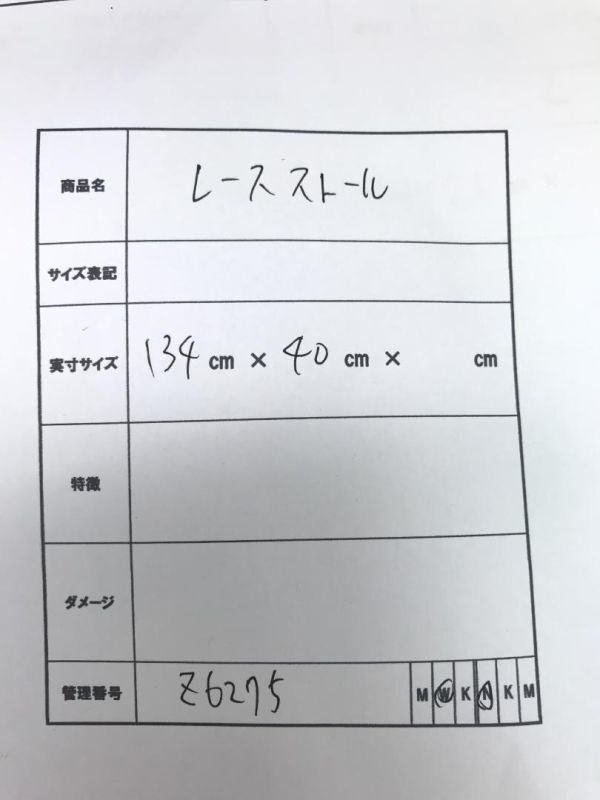 商品名 レースストール
サイズ表記
実寸サイズ 134 cm × 40 cm × cm
特徴
ダメージ
管理番号 Z6275 M W K N K M